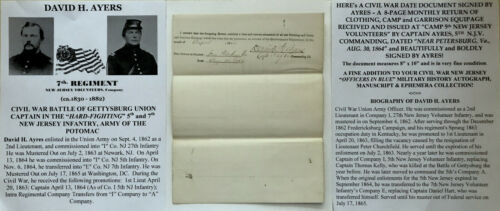 DAVID H. AYERS
7th REGIMENT
NEW JERSEY VOLUNTEERS, Company
(ca.1830 - 1882)
CIVIL WAR BATTLE OF GETTYSBURG UNION
CAPTAIN IN THE "HARD-FIGHTING" 5th and 7th
NEW JERSEY INFANTRY, ARMY OF THE
POTOMAC
David H. Ayres enlisted in the Union Army on Sept. 4, 1862 as a
2nd Lieutenant, and commissioned into "I" Co. NJ 27th Infantry
He was Mustered Out on July 2, 1863 at Newark, NJ. On April
13, 1864 he was commissioned into "I" Co. NJ 5th Infantry. On
Nov. 6, 1864, he transferred into "E" Co. NJ 7th Infantry. He was
Mustered Out on July 17, 1865 at Washington, DC. During the
Civil War, he received the following promotions: 1st Lieut April
20, 1863; Captain April 13, 1864 (As of Co. I 5th NJ Infantry);
Intra Regimental Company Transfers from "I" Company to "A"
Company.
HERE's A CIVIL WAR DATE DOCUMENT SIGNED BY
AYRES – A 8-PAGE MONTHLY RETURN OF
CLOTHING, CAMP and GARRISON EQUIPAGE
RECEIVED AND ISSUED AT "CAMP 5th NEW JERSEY
VOLUNTEERS" BY CAPTAIN AYRES, 5TH N.J.V.
COMMANDING, DATED "NEAR PETERSBURG, Va.,
AUG. 30, 1864" and BEAUTIFULLY and BOLDLY
SIGNED BY AYERS!
The document measures 8" x 10" and is in very fine condition
A FINE ADDITION TO YOUR CIVIL WAR NEW JERSEY
"OFFICERS IN BLUE" MILITARY HISTORY AUTOGRAPH,
MANUSCRIPT & EPHEMERA COLLECTION!
BIOGRAPHY OF DAVID H. AYERS
Civil War Union Army Officer. He was commissioned as a 2nd
Lieutenant in Company I, 27th New Jersey Volunteer Infantry, and was
mustered in on September 4, 1862. After serving through the December
1862 Fredericksburg Campaign, and his regiment's Spring 1863
occupation duty in Kentucky, he was promoted to 1st Lieutenant on
April 20, 1863, filling the vacancy caused by the resignation of
Lieutenant Peter Churchfield. He served until the expiration of his
enlistment on July 2, 1863. Nearly a year later he was commissioned
Captain of Company I, 5th New Jersey Volunteer Infantry, replacing
Captain Thomas Kelly, who was killed at the Battle of Gettysburg the
year before. He was later moved to command the 5th's Company A.
When the original enlistments for the 5th New Jersey expired in
September 1864, he was transferred to the 7th New Jersey Volunteer
Infantry's Company E, replacing Captain Daniel Hart, who was
transferred himself. Served until his master out of Federal service on
July 17, 1865.